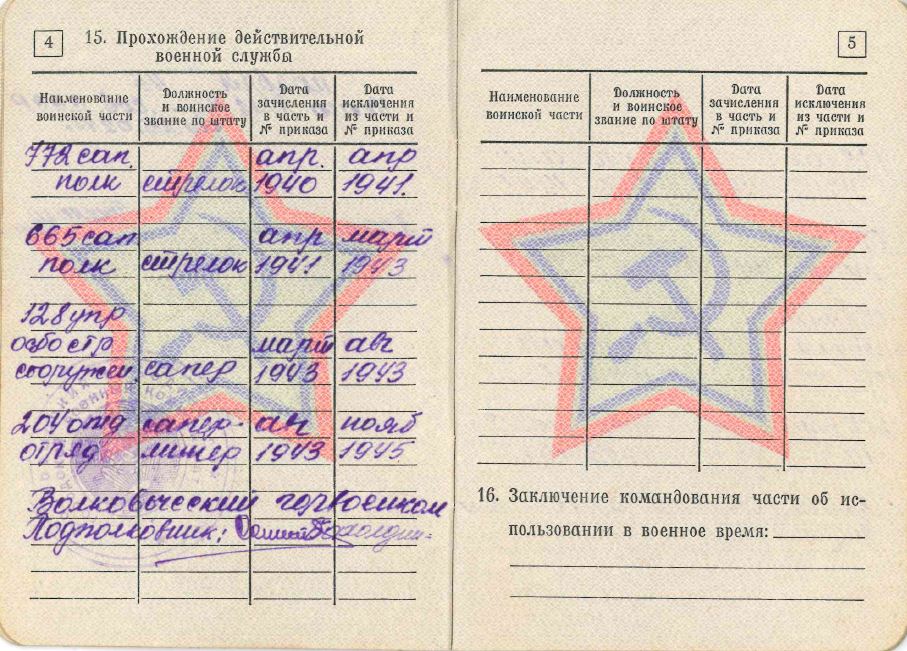 4
15. Прохождение действительной
военной службы
Наименование
воинской части
Должность
и воинское
звание по штату
Дата
зачисления
в часть и
№ приказа
Дата
исключения
из части и
№ приказа
772 сап. апр. апр
полк стрелок 1940 1941.
665 сап апр март
полк стрелок 1941 1943
128 упр
март авг
сооружен. сапер 1943 1943
204 отд сапер- авг нояб
отряд минер 1943 1945.
Волковысский горвоенком
Подполковник:
5
Наименование
воинской части
Должность
и воинское
звание по штату
Дата
зачисления
в часть и
№ приказа
Дата
исключения
из части и
№ приказа
16. Заключение командования части об ис-
пользовании в военное время: